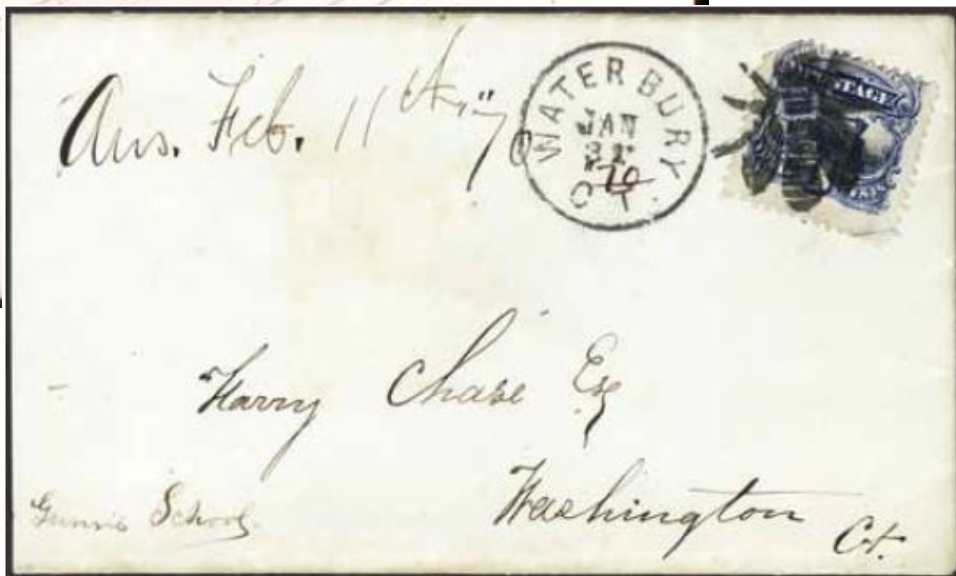 Ans. Feb. 11th, "70
WATERBURY
JAN
31
70
CT.
POSTAGE
Harry Chase Esq
Washington
Ct.
Gunn's School.